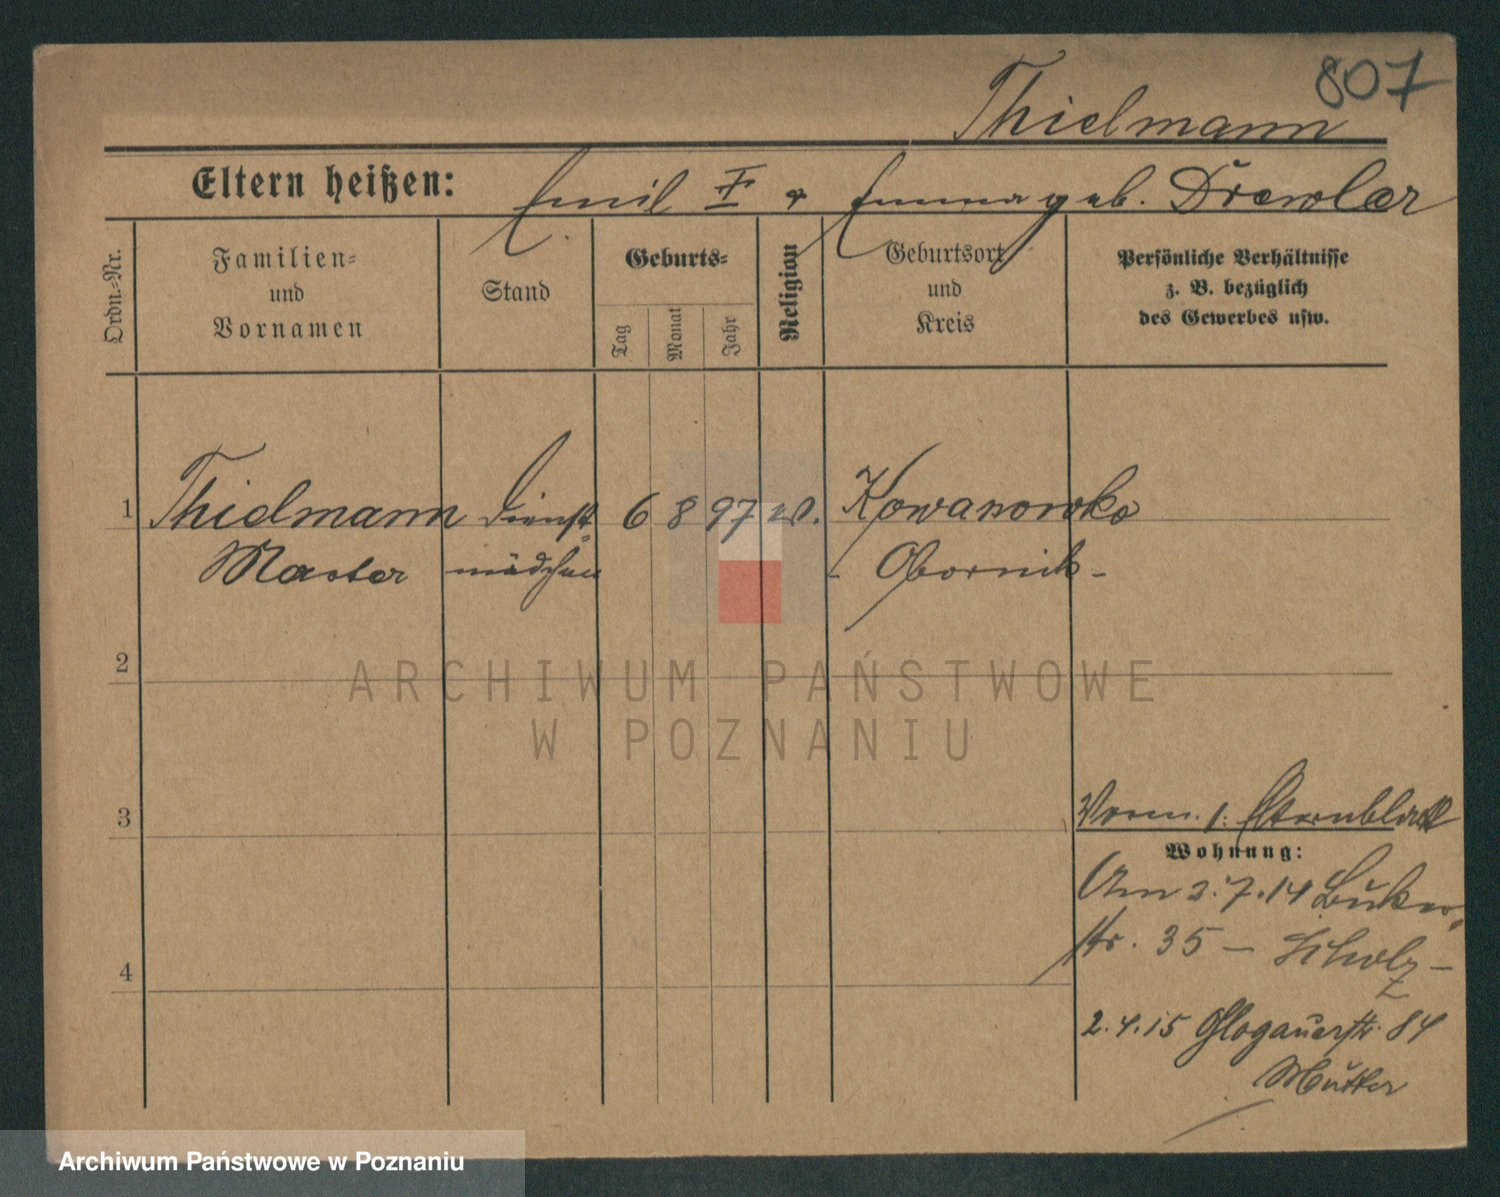 807
Thielmann
Eltern heißen: Emil F + Emma geb. Drewlar
Ordn.-Nr.
Familien-
und
Vornamen
Stand
Geburts-
Tag
Monat
Jahr
Religion
Geburtsort
und
Kreis
Persönliche Verhältnisse
z. B. bezüglich
des Gewerbes usw.
1 Thielmann Dienst- 6 8 97 Kowanowko
mädchen - Obornik -
2
ARCHIWUM PAŃSTWOWE
W POZNANIU
3
Vorm. 1. Sternblatt
Wohnung:
Am 2.7.14 Buker-
str. 35 - Scholz -
4
2.4.15 Glogauerstr. 84
Mutter
Archiwum Państwowe w Poznaniu